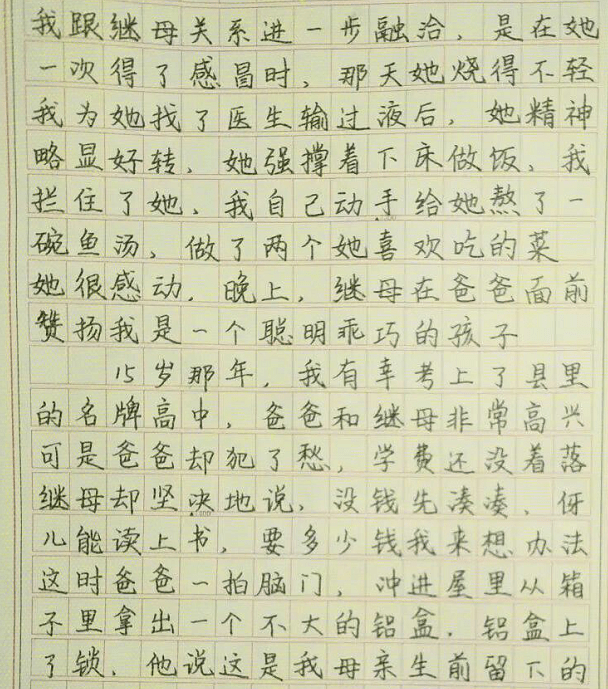 我跟继母关系进一步融洽，是在她
一次得了感冒时，那天她烧得不轻
我为她找了医生输过液后，她精神
略显好转，她强撑着下床做饭，我
拦住了她，我自己动手给她熬了一
碗鱼汤，做了两个她喜欢吃的菜
她很感动，晚上，继母在爸爸面前
赞扬我是一个聪明乖巧的孩子
15岁那年，我有幸考上了县里
的名牌高中，爸爸和继母非常高兴
可是爸爸却犯了愁，学费还没着落
继母却坚决地说，没钱先凑凑，伢
儿能读上书，要多少钱我来想办法
这时爸爸一拍脑门，冲进屋里从箱
子里拿出一个不大的铝盒，铝盒上
了锁，他说这是我母亲生前留下的